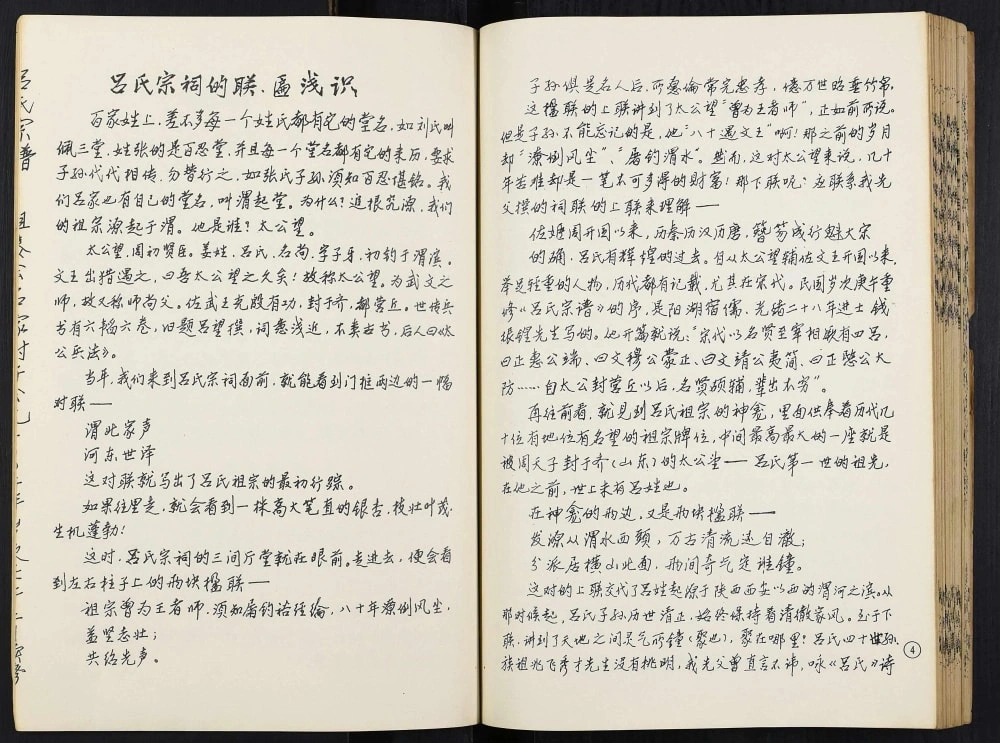 吕氏宗祠的联、匾浅识
百家姓上，差不多每一个姓氏都有它的堂名，如刘氏叫
佩三堂，姓张的是百忍堂，并且每一个堂名都有它的来历，要求
子孙代代相传，勿替行之，如张氏子孙须知百忍堪铭。我
们吕家也有自己的堂名，叫渭起堂。为什么？追根究源，我们
的祖宗源起于渭。他是谁？太公望。
太公望，周初贤臣。姜姓，吕氏，名尚，字子牙，初钓于渭滨。
文王出猎遇之，曰吾太公望之久矣！故称太公望。为武文之
师，故又称师尚父。佐武王克殷有功，封于齐，都营丘。世传兵
书有六韬六卷，旧题吕望撰，词意浅近，不类古书，后人曰《太
公兵法》。
当年，我们来到吕氏宗祠面前，就能看到门框两边的一幅
对联——
渭北家声
河东世泽
这对联就写出了吕氏祖宗的最初行踪。
如果往里走，就会看到一株高大笔直的银杏，枝壮叶茂，
生机蓬勃！
这时，吕氏宗祠的三间厅堂就在眼前。走进去，便会看
到左右柱子上的两块楹联——
祖宗曾为王者师，须知屠钓裕经纶，八十年潦倒风尘，
益坚志壮；
共绍先声。
子孙俱是名人后，所惫伦常完忠孝，亿万世昭垂竹帛，
这楹联的上联讲到了太公望“曾为王者师”，正如前所说。
但是子孙不能忘记的是，他“八十遇文王”啊！那之前的岁月
却“潦倒风尘”、“屠钓渭水”。然而，这对太公望来说，几十
年苦难却是一笔不可多得的财富！那下联呢？应联系我先
父撰的祠联的上联来理解——
佐姬周开国以来，历秦历汉历唐，簪笏成行魁大宗
的确，吕氏有辉煌的过去。自从太公望辅佐文王开国以来，
举足轻重的人物，历代都有记载，尤其在宋代。民国岁次庚午重
修《吕氏宗谱》的序，是阳湖宿儒，光绪二十八年进士钱
振锽先生写的。他开篇就说：“宋代以名贤至宰相厥有四吕，
曰正惠公端，曰文穆公蒙正、曰文靖公夷简、曰正愍公大
防……自太公封营丘以后，名贤硕辅，辈出不穷”。
再往前看，就见到吕氏祖宗的神龛，里面供奉着历代几
十位有地位有名望的祖宗牌位，中间最高最大的一座就是
被周天子封于齐（山东）的太公望——吕氏第一世的祖先，
在他之前，世上未有吕姓也。
在神龛的两边，又是两块楹联——
发源从渭水西头，万古清流还自澈；
分派居横山北面，两间奇气定谁锺。
这对的上联交代了吕姓起源于陕西西安以西的渭河之滨。从
那时候起，吕氏子孙历世清正，始终保持着清澈家风。至于下
联，讲到了天地之间灵气所锺（聚也），聚在哪里？吕氏四十世孙
族祖兆飞秀才先生没有挑明，我先父曾直言不讳，咏《吕氏》诗
4
吕氏宗谱